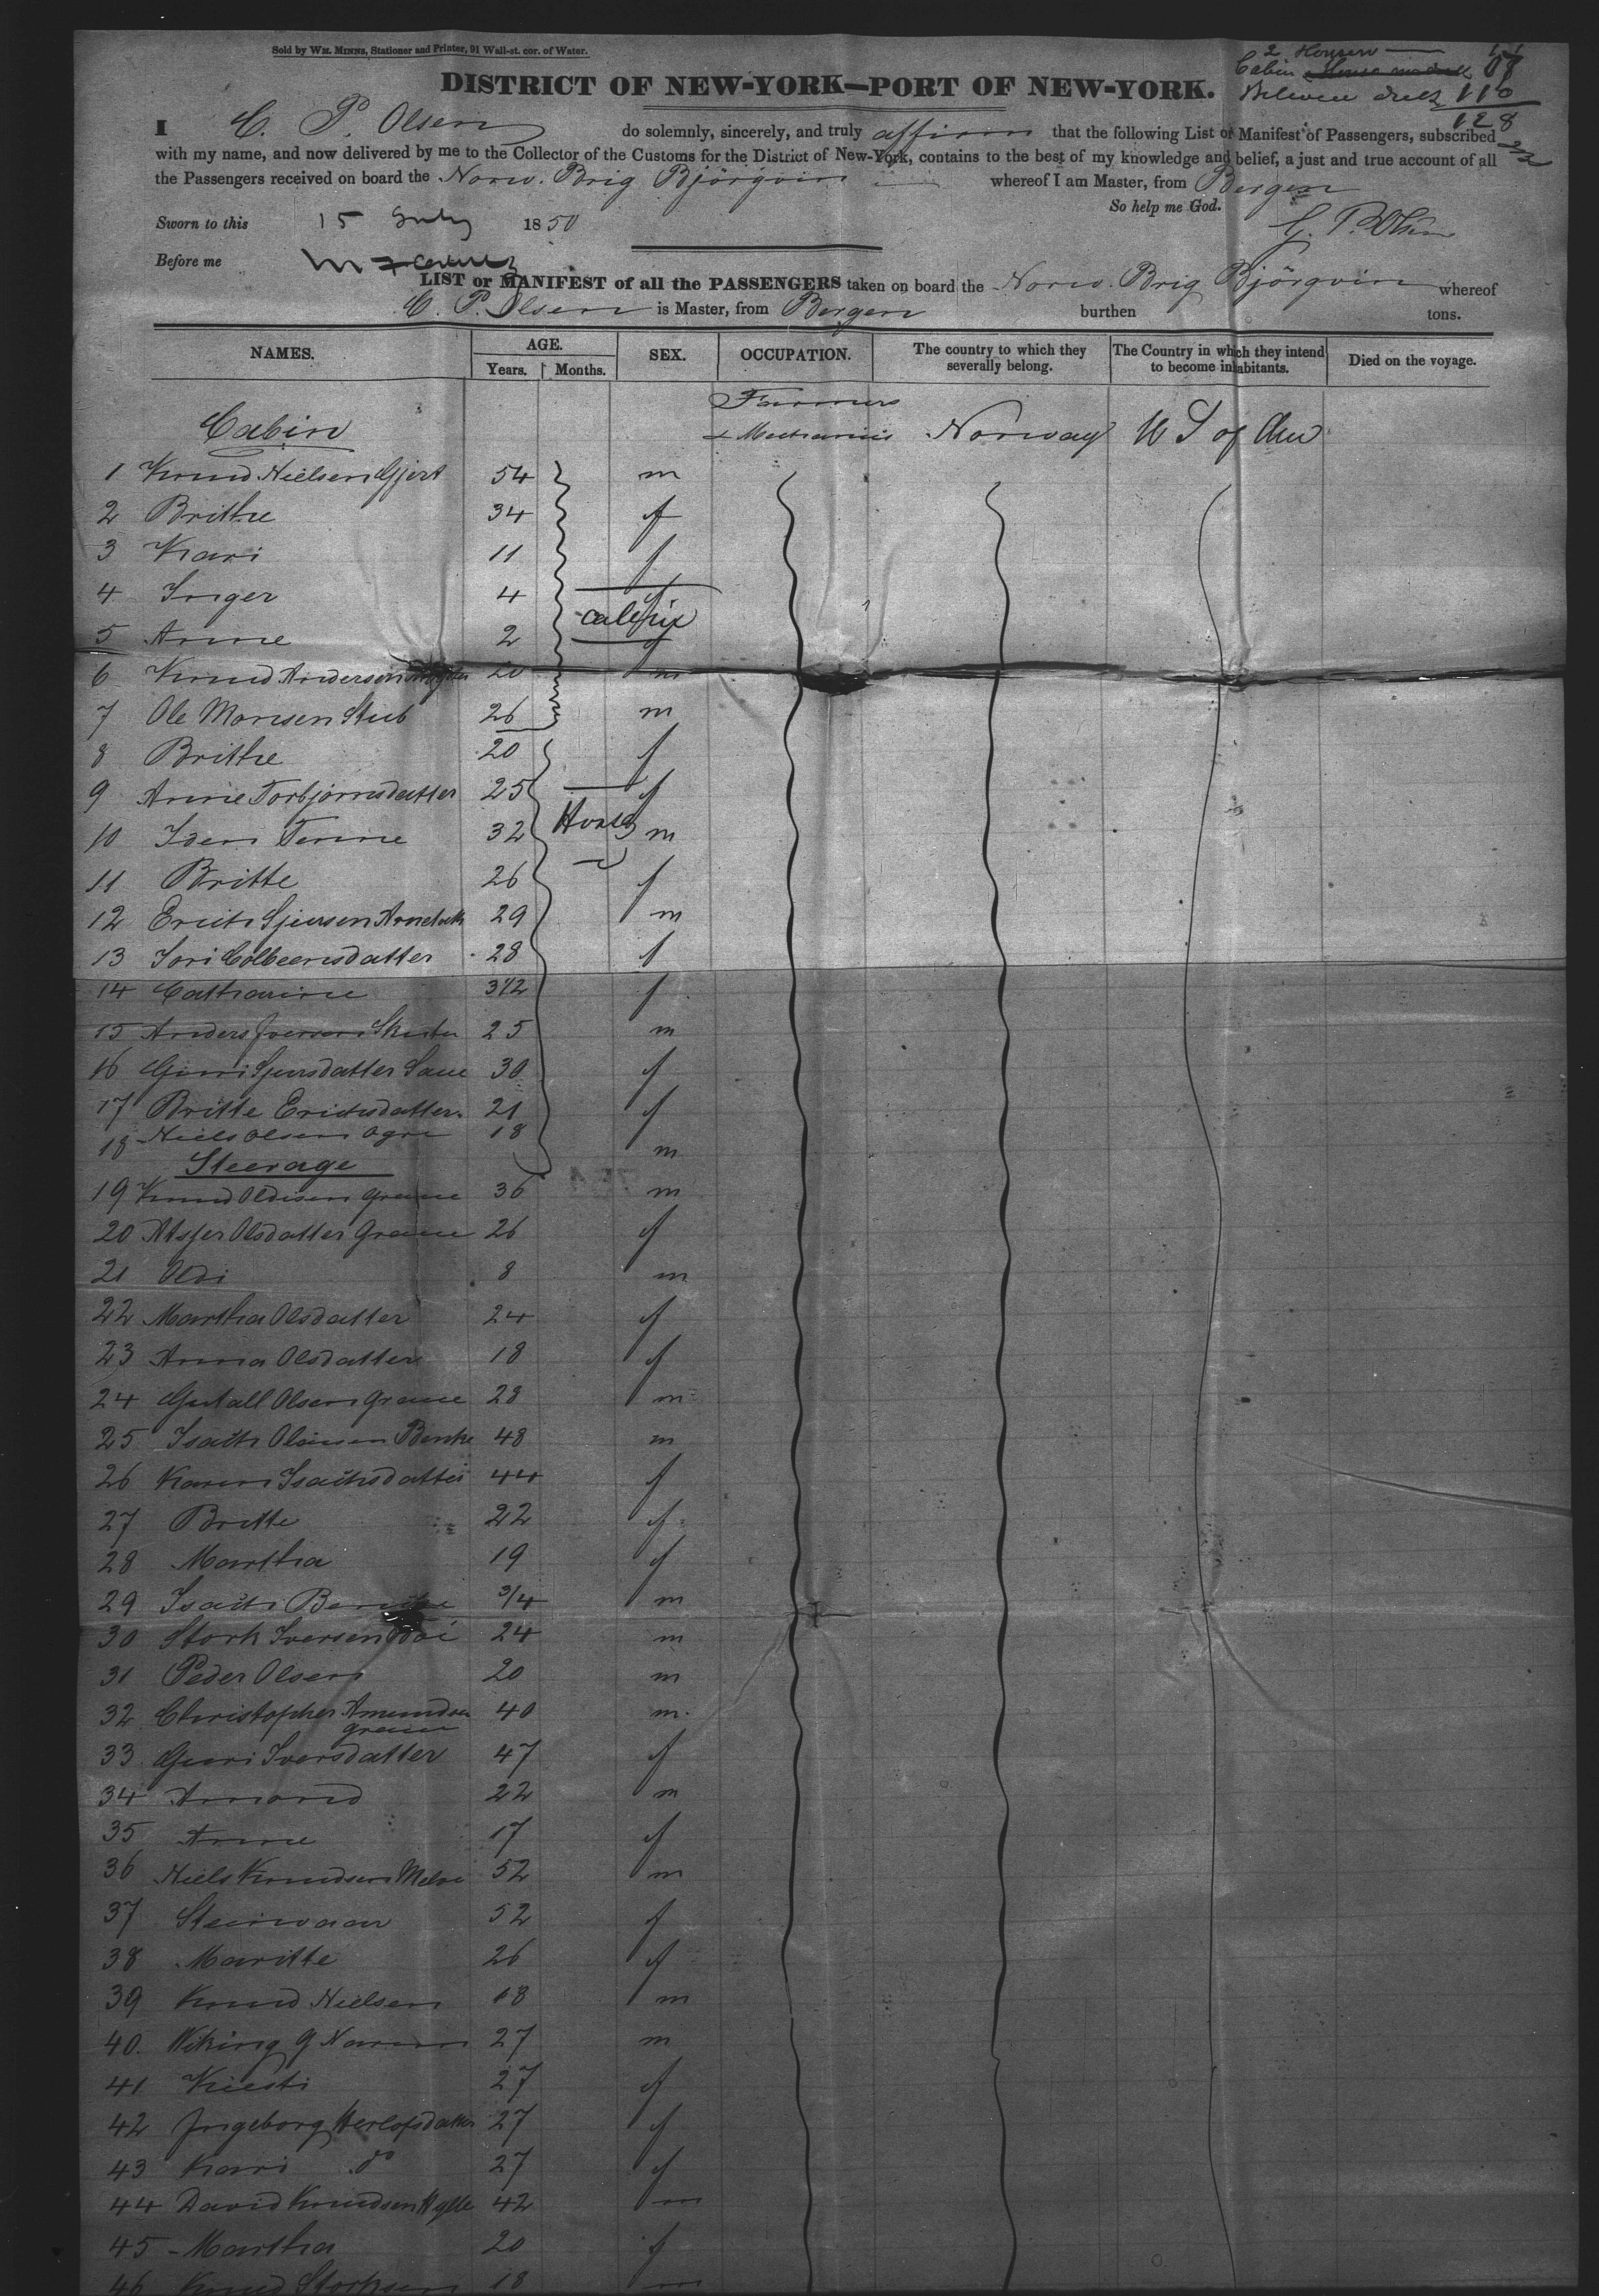 Sold by WM. MINNS, Stationer and Printer, 91 Wall-st. cor. of Water.
2 Houses
Cabin
Between deck 110
128
DISTRICT OF NEW-YORK—PORT OF NEW-YORK.
I C. P. Olsen do solemnly, sincerely, and truly affirm that the following List or Manifest of Passengers, subscribed
with my name, and now delivered by me to the Collector of the Customs for the District of New-York, contains to the best of my knowledge and belief, a just and true account of all
the Passengers received on board the Norw. Brig Björgvin whereof I am Master, from Bergen
So help me God.
Sworn to this 15 July 1850
C. P. Olsen
Before me
LIST or MANIFEST of all the PASSENGERS taken on board the Norw. Brig Björgvin whereof
C. P. Olsen is Master, from Bergen burthen tons.
NAMES. AGE. Years. Months. SEX. OCCUPATION. The country to which they severally belong. The Country in which they intend to become inhabitants. Died on the voyage.
Cabin Farmers & Mechanics Norway U S of Am
1 Knud Nielsen Gjert 54 m
2 Brithe 34 f
3 Kari 11 f
4 Inger 4 f
5 Anne 2 f
cabin
6 Knud Andersen 20 m
7 Ole Monsen Stub 26 m
8 Brithe 20 f
9 Anne Torbjörnsdatter 25 f
10 Iden Tenne 32 m
House
11 Britte 26 f
12 Erick Sjursen 29 m
13 Iori Colbeensdatter 28 f
14 Catharine 3 1/2 f
15 Anders Iversen 25 m
16 Guri Sjursdatter Saue 30 f
17 Britte Ericksdatter 21 f
18 Niels Olsen 18 m
Steerage
19 Knud Oldisen Graue 36 m
20 Olsdatter Graue 26 f
21 Oldi 8 m
22 Martha Olsdatter 24 f
23 Anna Olsdatter 18 f
24 Olsen Graue 28 m
25 Isach 48 m
26 Karen Isachsdatter 44 f
27 Britte 22 f
28 Martha 19 f
29 Isach 3/4 m
30 Stork Iversen 24 m
31 Peder Olsen 20 m
32 Christopher Amundsen Graue 40 m
33 Guri Iversdatter 47 f
34 Amond 22 m
35 Anne 17 f
36 Niels Knudsen 52 m
37 Steinvaar 52 f
38 Maritte 26 f
39 Knud Nielsen 18 m
40 Wiking 27 m
41 27 f
42 Ingeborg Herlofsdatter 27 f
43 Kari do 27 f
44 David Knudsen Hylle 42 m
45 Martha 20 f
46 Knud Storksen 18 m